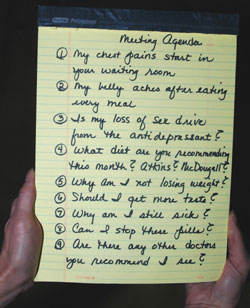 Meeting Agenda
① My chest pains start in
your waiting room
② My belly aches after eating
every meal
③ Is my loss of sex drive
from the antidepressant?
④ What diet are you recommending
this month? Atkins? McDougall?
⑤ Why am I not losing weight?
⑥ Should I get more tests?
⑦ Why am I still sick?
⑧ Can I stop these pills?
⑨ Are there any other doctors
you recommend I see?